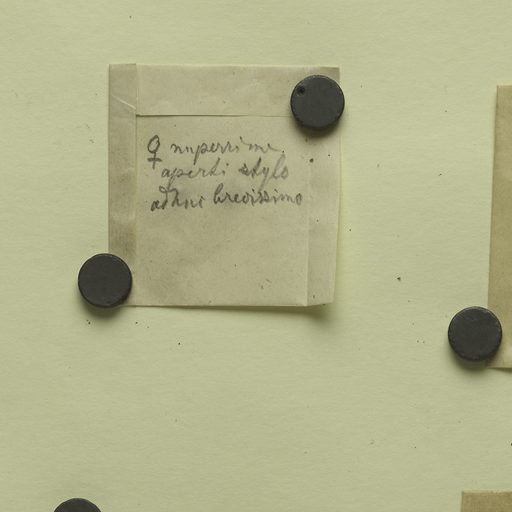 ♀ nuperrime
aperti stylo
adhuc brevissimo